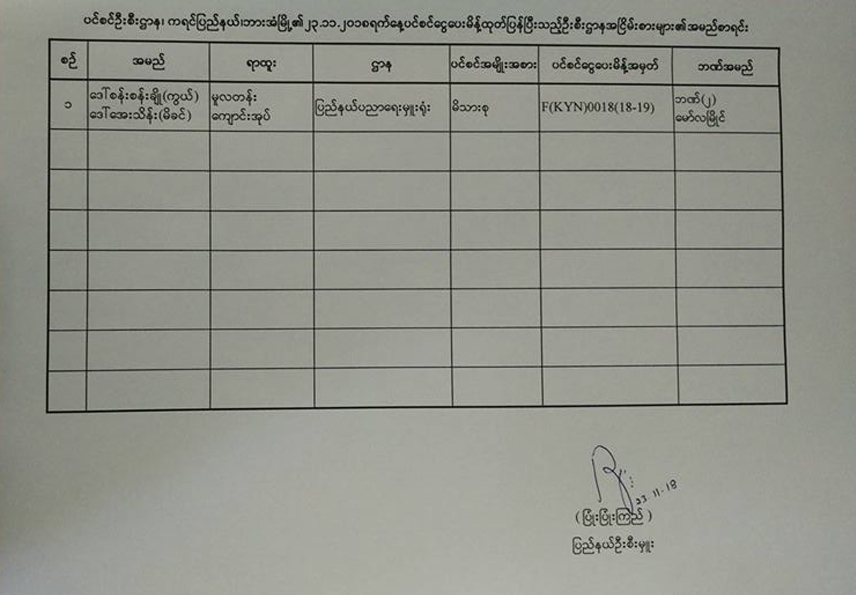 ပင်စင်ဦးစီးဌာန၊ ကရင်ပြည်နယ်၊ဘားအံမြို့၏၂၃.၁၁.၂၀၁၈ရက်နေ့ပင်စင်ငွေပေးမိန့်ထုတ်ပြန်ပြီးသည့်ဦးစီးဌာနအငြိမ်းစားများ၏အမည်စာရင်း
စဉ် အမည် ရာထူး ဌာန ပင်စင်အမျိုးအစား ပင်စင်ငွေပေးမိန့်အမှတ် ဘဏ်အမည်
၁ ဒေါ်စန်းစန်းချို(ကွယ်) မူလတန်း ပြည်နယ်ပညာရေးမှူးရုံး မိသားစု F(KYN)0018(18-19) ဘဏ်(၂)
ဒေါ်အေးသိန်း(မိခင်) ကျောင်းအုပ် မော်လမြိုင်
23.11.18
( ပြုံးပြုံးကြည် )
ပြည်နယ်ဦးစီးမှူး